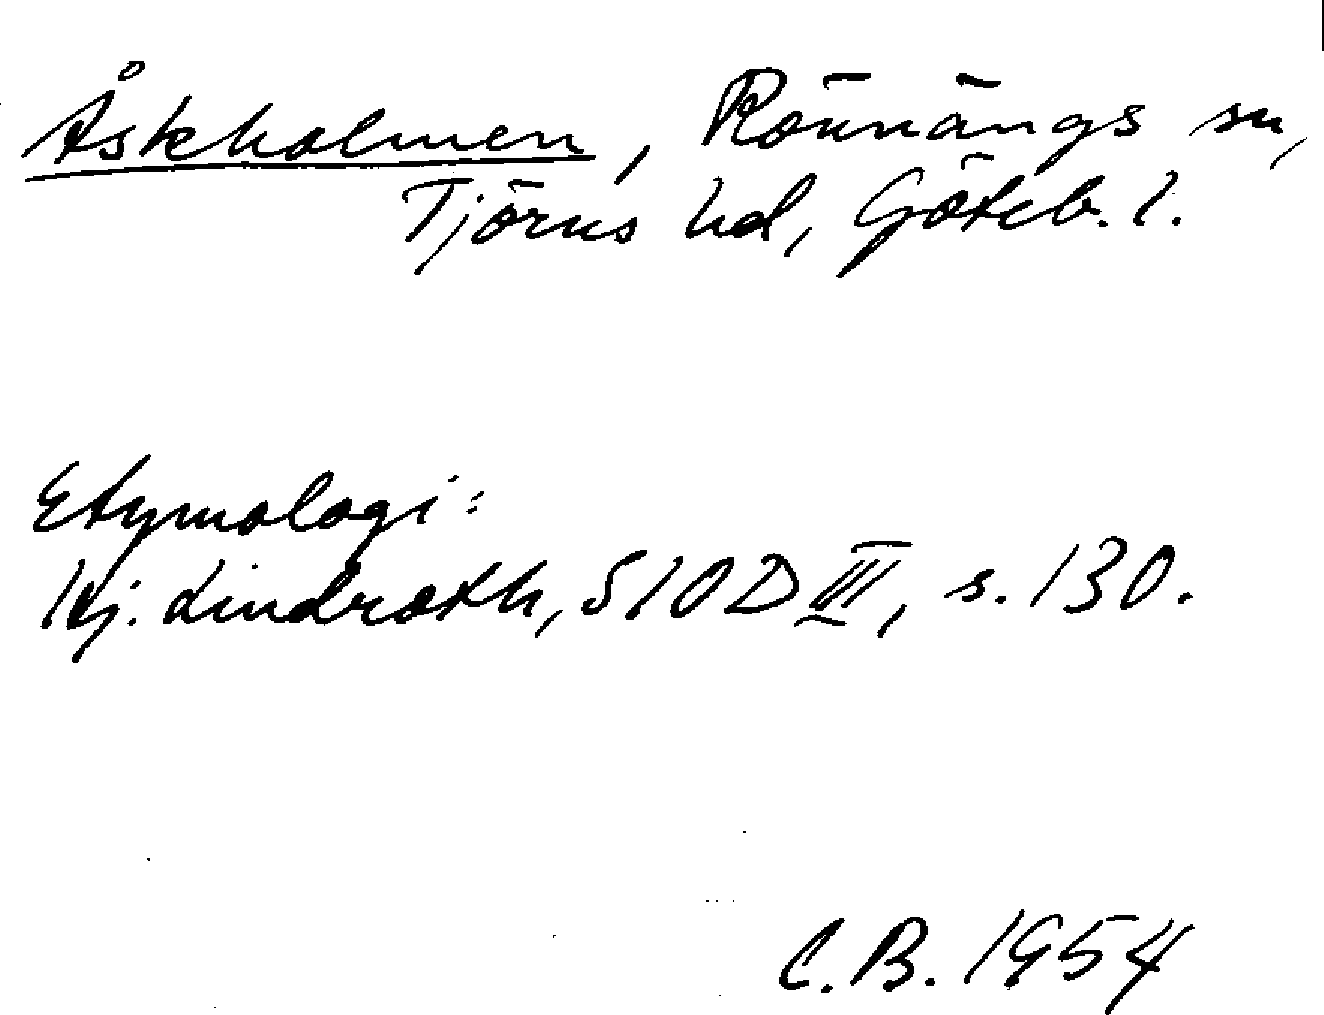 Åskholmen, Rönnängs sn,
Tjörns hd, Göteb. l.
Etymologi:
Hj. Lindroth, SIOD III, s. 130.
C.B. 1954